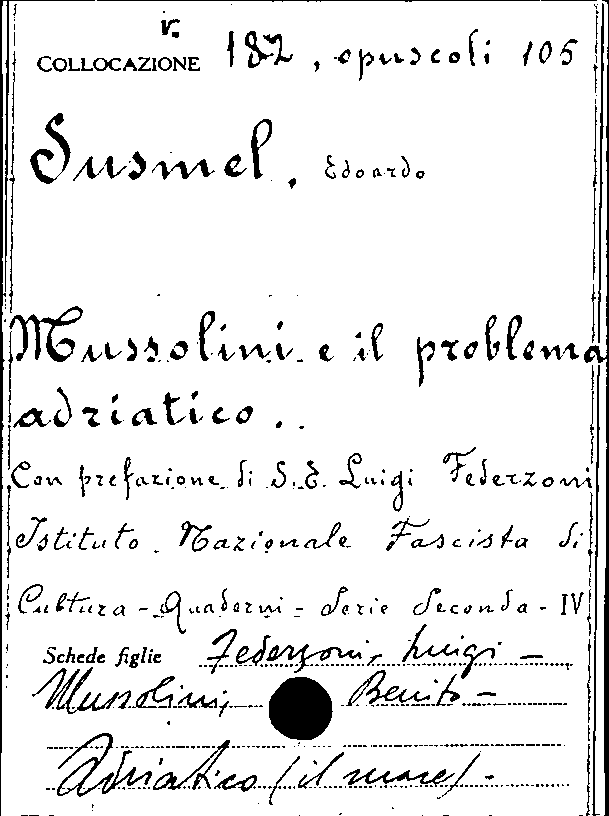 v.
COLLOCAZIONE 182, opuscoli 105
Susmel, Edoardo
Mussolini e il problema
adriatico..
Con prefazione di S.E. Luigi Federzoni
Istituto Nazionale Fascista di
Cultura - Quaderni - Serie Seconda - IV
Schede figlie Federzoni, Luigi -
Mussolini, Benito -
Adriatico (il mare) -